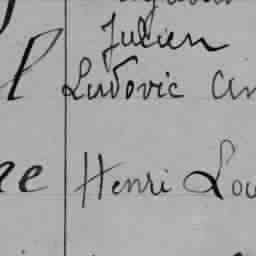 Julien
Ludovic
Henri Lou